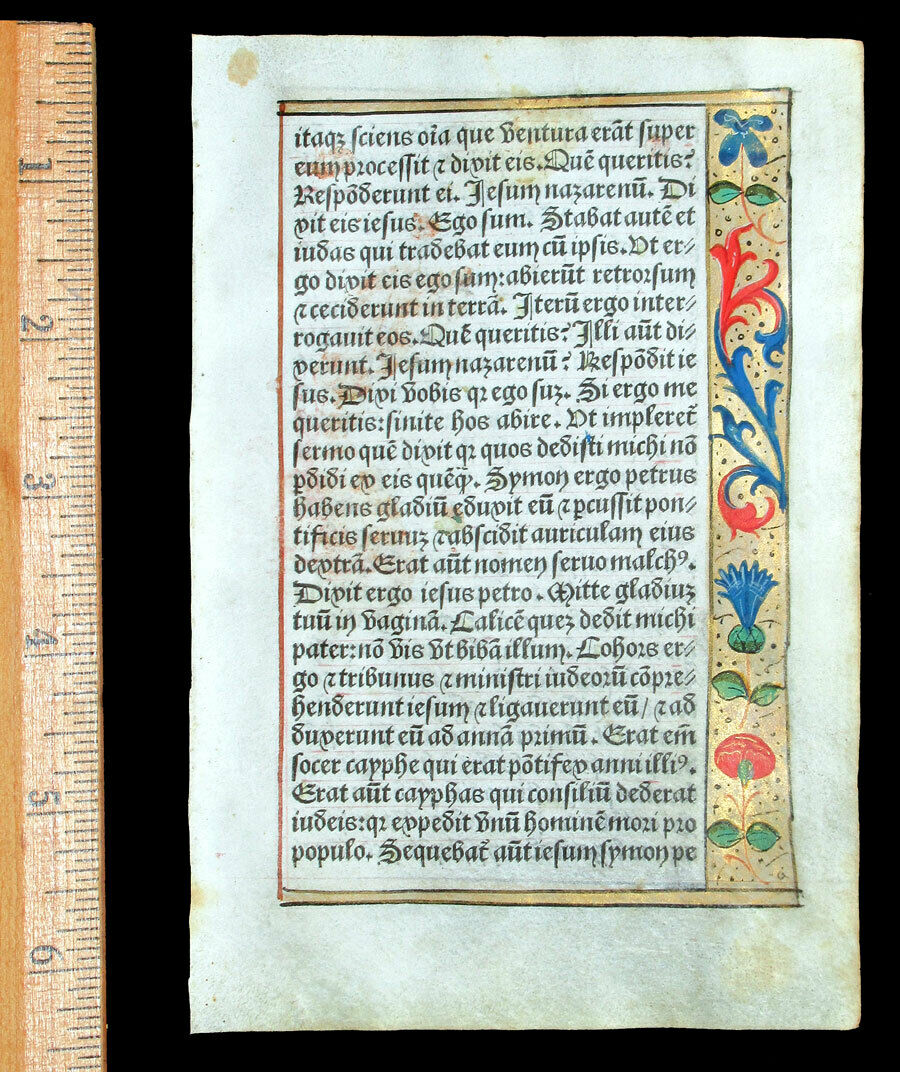 itaqꝫ sciens oı̃a que ventura erãt super
eum processit ⁊ dixit eis. Quẽ queritis?
Respõderunt ei. Jesum nazarenũ. Di
xit eis iesus. Ego sum. Stabat autẽ et
iudas qui tradebat eum cũ ipsis. Vt er⸗
go dixit eis ego sum: abierũt retrorsum
⁊ ceciderunt in terrã. Iterũ ergo inter⸗
rogauit eos. Quẽ queritis? Illi aũt di⸗
xerunt. Jesum nazarenũ? Respõdit ie
sus. Dixi vobis qꝛ ego suꝫ. Si ergo me
queritis: sinite hos abire. Vt impleret̃
sermo quẽ dixit qꝛ quos dedisti michi nõ
ꝑdidi ex eis quẽq̃. Symon ergo petrus
habens gladiũ eduxit eũ ⁊ ꝑcussit pon⸗
tificis seruuꝫ ⁊ abscidit auriculam eius
dextrã. Erat aũt nomen seruo malchꝰ.
Dixit ergo iesus petro. Mitte gladiuꝫ
tuũ in vaginã. Calicẽ queꝫ dedit michi
pater: nõ vis vt bibã illum. Cohors er⸗
go ⁊ tribunus ⁊ ministri iudeorũ cõpre⸗
henderunt iesum ⁊ ligauerunt eũ / ⁊ ad
duxerunt eũ ad annã primũ. Erat em̃
socer cayphe qui erat põtifex anni illiꝰ.
Erat aũt cayphas qui consiliũ dederat
iudeis: qꝛ expedit vnũ hominẽ mori pro
populo. Sequebat̃ aũt iesum symon pe
1
2
3
4
5
6